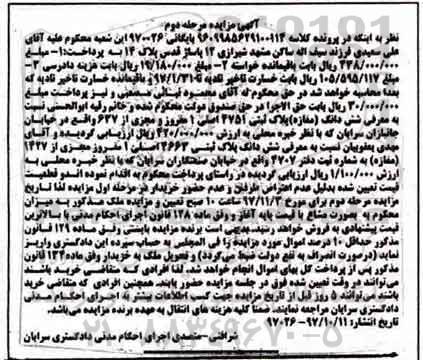 آگهی مزایده مرحله دوم
نظر به اینکه در پرونده کلاسه ۹۶۰۹۹۸۵۶۲۹۱۰۰۹۱۴ بایگانی ۹۷۰۰۲۶ این شعبه محکوم علیه آقای
علی سعیدی فرزند سیف اله ساکن مشهد شیرازی ۱۲ پاساژ قدس پلاک ۱۴ به پرداخت: ۱- مبلغ
۳۳۸/۰۰۰/۰۰۰ ریال بابت باقیمانده خواسته ۲- مبلغ ۱۹/۱۸۰/۰۰۰ ریال بابت هزینه دادرسی ۳-
مبلغ ۱۰۵/۵۹۵/۱۱۷ ریال بابت خسارت تاخیر تادیه تا ۹۷/۱/۳۱ و باقیمانده خسارت تاخیر تادیه که
بعدا محاسبه خواهد شد در حق محکوم له آقای محمود نیائی صمعی و نیز پرداخت مبلغ
۳۰/۰۰۰/۰۰۰ ریال بابت حق الاجرا در حق صندوق دولت محکوم شده و خانم رقیه ابوالحسنی نسبت
به معرفی شش دانگ (مغازه) پلاک ثبتی ۴۷۵۱ اصلی ۱ مفروز و مجزی از ۶۳۷ واقع در خیابان
جانبازان سرایان که با نظر خبره محلی به ارزش ۴۲۰/۰۰۰/۰۰۰ ریال ارزیابی گردیده و آقای
مهدی یعقوبیان نسبت به معرفی شش دانگ پلاک ثبتی ۴۶۶۳ اصلی ۱ مفروز مجزی از ۱۴۲۷
(مغازه) به شماره ثبت دفتر ۴۷۰۷ واقع در خیابان صنعتکاران سرایان که با نظر خبره محلی به
ارزش ۱/۱۰۰/۰۰۰ ریال ارزیابی گردیده در راستای پرداخت محکوم به اقدام نموده اند و قطعیت
قیمت تعیین شده بدلیل عدم اعتراض طرفین و عدم حضور خریدار در مرحله اول مزایده لذا تاریخ
مزایده مرحله دوم برای مورخ ۹۷/۱۱/۳ ساعت ۱۰ صبح تعیین و مزایده ملک مذکور به میزان
محکوم به بصورت مشاع با قیمت پایه آغاز و وفق ماده ۱۲۸ قانون اجرای احکام مدنی با بالاترین
قیمت پیشنهادی به فروش خواهد رسید. بدیهی است برنده مزایده بایستی وفق ماده ۱۲۹ قانون
مذکور حداقل ۱۰ درصد اموال مورد مزایده را فی المجلس به حساب سپرده این دادگستری واریز
نماید (در صورت انصراف به نفع دولت ضبط می گردد) و تحویل ملک به خریدار وفق ماده ۱۳۴ قانون
مذکور پس از پرداخت کل بهای اموال انجام خواهد شد، لذا افرادی که متقاضی خرید باشند
می توانند در وقت تعیین شده فوق در جلسه مزایده حضور یابند. همچنین افرادی که متقاضی خرید
باشند می توانند ۵ روز قبل از تاریخ مزایده جهت کسب اطلاعات بیشتر به اجرای احکام مدنی
دادگستری سرایان مراجعه نمایند. ضمنا کلیه هزینه های انتقال به عهده برنده مزایده می باشد.
تاریخ انتشار: ۹۷/۱۰/۱۱- ۹۷۰۲۶
شرافتی-متصدی اجرای احکام مدنی دادگستری سرایان
۰۲۱-۸۸۳۴۹۶۷۰-۵